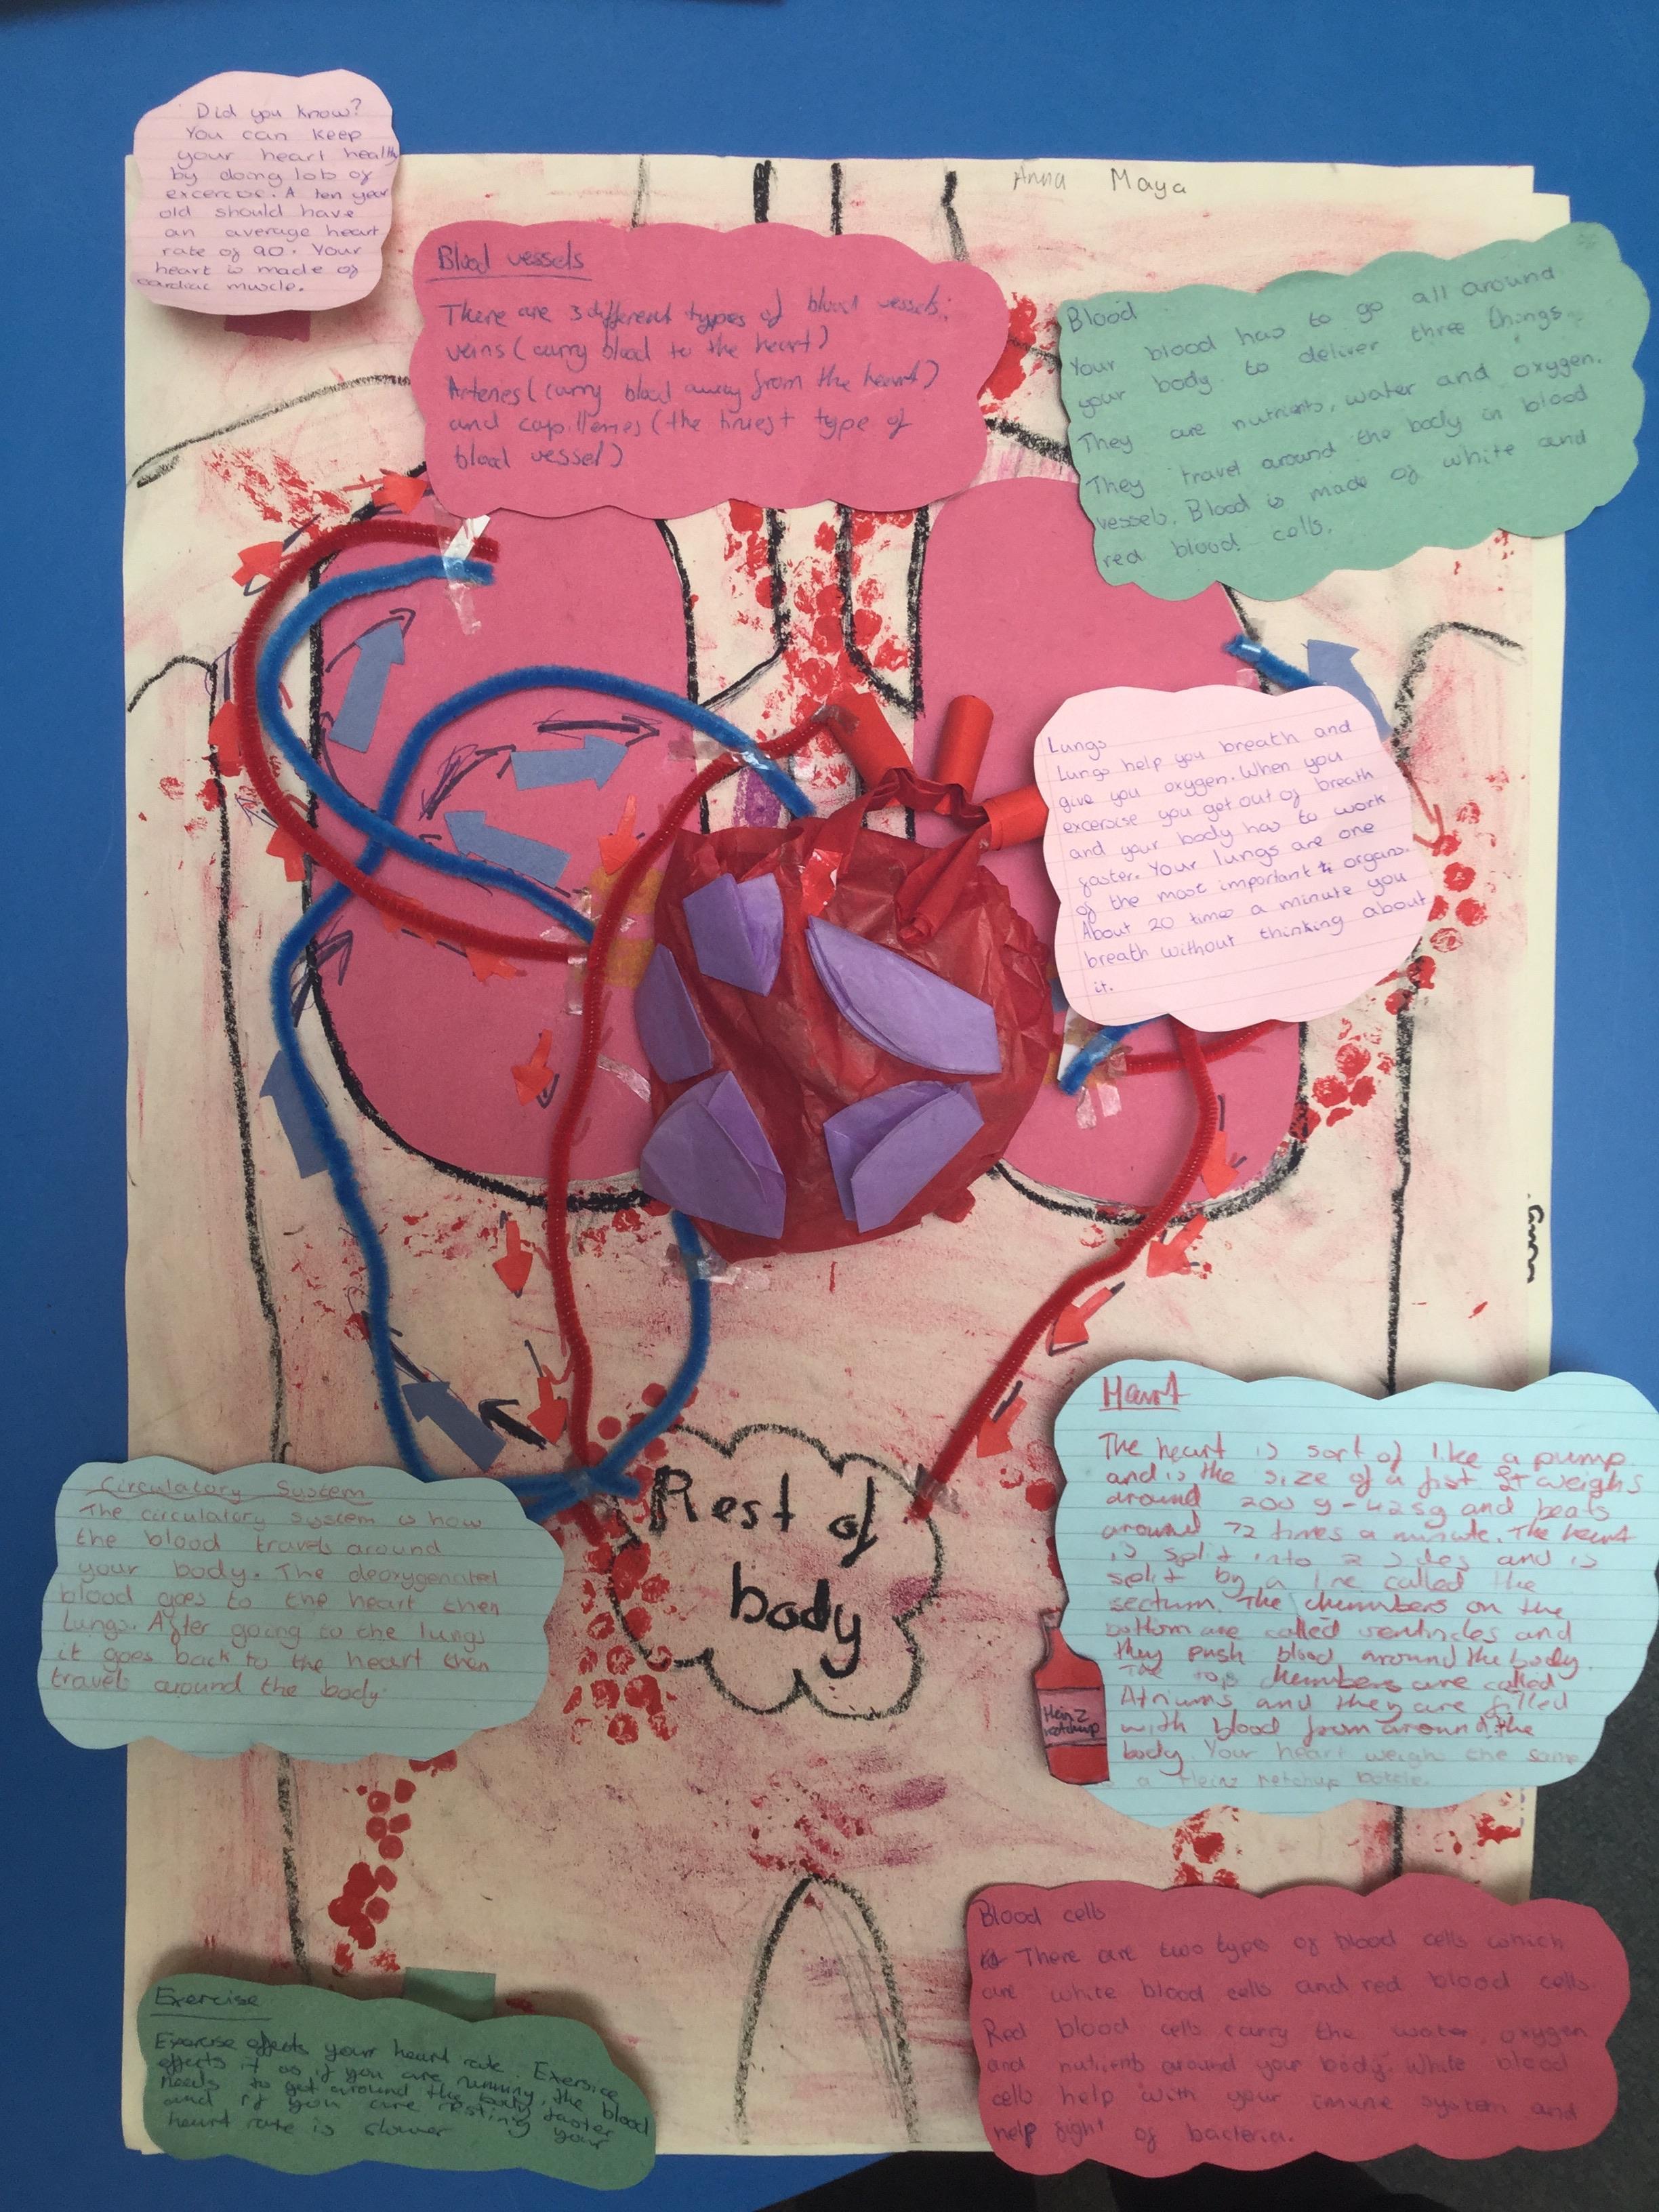 Did you know?
You can keep
your heart healthy
by doing lots of
excercise. A ten year
old should have
an average heart
rate of 90. Your
heart is made of
cardiac muscle.
Anna Maya
Blood vessels
There are 3 different types of blood vessels:
veins (carry blood to the heart)
Arteries (carry blood away from the heart)
and capilleries (the tiniest type of
blood vessel)
Blood
Your blood has to go all around
your body to deliver three things.
They are nutrients, water and oxygen.
They travel around the body in blood
vessels. Blood is made of white and
red blood cells.
Lungs
Lungs help you breath and
give you oxygen. When you
excersise you get out of breath
and your body has to work
faster. Your lungs are one
of the most important organs.
About 20 times a minute you
breath without thinking about
it.
Heart
The heart is sort of like a pump
and is the size of a fist It weighs
around 200 g - 425g and beats
around 72 times a minute. The heart
is split into 2 sides and is
split by a line called the
sectum. The chembers on the
bottom are called ventricles and
they push blood around the body.
The top chembers are called
Atriums and they are filled
with blood from around the
body. Your heart weighs the same
a Heinz ketchup bottle.
Heinz
ketchup
Rest of
body
Circulatory System
The circulatory system is how
the blood travels around
your body. The deoxygenated
blood goes to the heart then
lungs. After going to the lungs
it goes back to the heart then
travels around the body.
Exercise
Exercise effects your heart rate. Exersice
effects it as if you are running, the blood
needs to get around the body faster
and if you are resting your
heart rate is slower
Blood cells
There are two types of blood cells which
are white blood cells and red blood cells.
Red blood cells carry the water, oxygen
and nutrients around your body. White blood
cells help with your imune system and
help fight of bacteria.